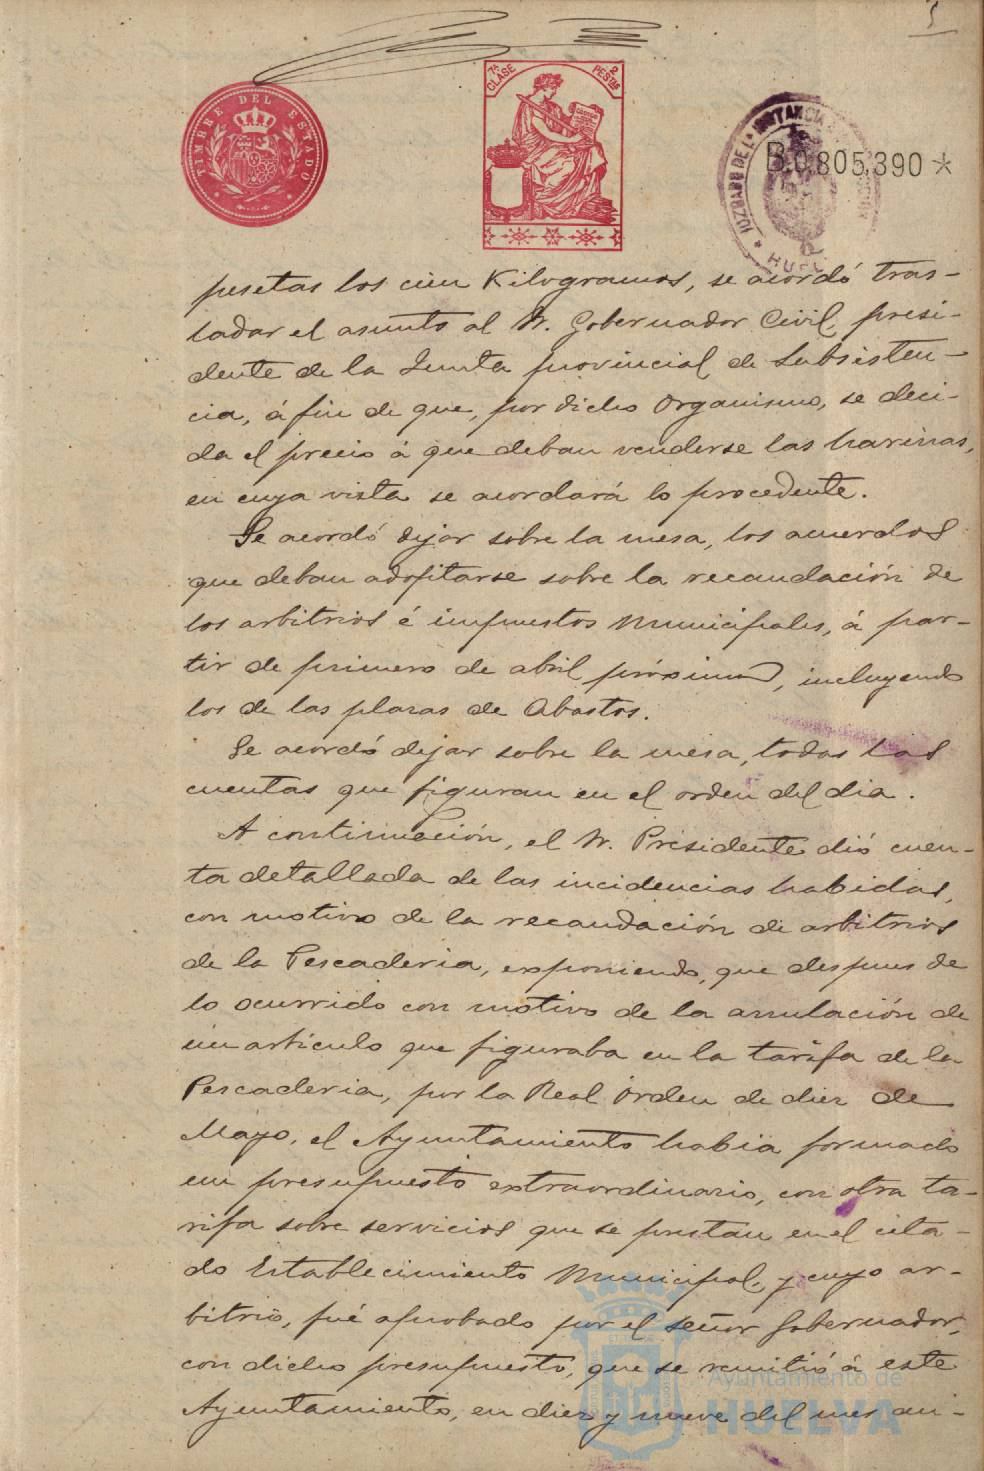 5
TIMBRE DEL ESTADO
7ª CLASE
2 PESTAS
JUZGADO DE 1ª INSTANCIA
HUELVA
B.0.805.390 *
pesetas los cien Kilogramos, se acordó tras-
ladar el asunto al Sr. Gobernador Civil, presi-
dente de la Junta provincial de Subsisten-
cia, á fin de que, por dicho Organismo, se deci-
da el precio á que deban venderse las harinas,
en cuya vista se acordará lo procedente.
Se acordó dejar sobre la mesa, los acuerdos
que deban adoptarse sobre la recaudación de
los arbitrios é impuestos Municipales, á par-
tir de primero de abril próximo, incluyendo
los de las plazas de Abastos.
Se acordó dejar sobre la mesa, todas las
cuentas que figuran en el orden del dia.
A continuación, el Sr. Presidente dió cuen-
ta detallada de las incidencias habidas,
con motivo de la recaudación de arbitrios
de la Pescaderia, exponiendo, que despues de
lo ocurrido con motivo de la anulación de
un articulo que figuraba en la tarifa de la
Pescaderia, por la Real Orden de diez de
Mayo, el Ayuntamiento habia formado
un presupuesto extraordinario, con otra ta-
rifa sobre servicios que se prestan en el cita-
do Establecimiento Municipal, y cuyo ar-
bitrio, fué aprobado por el señor Gobernador,
con dicho presupuesto, que se remitió á este
Ayuntamiento, en diez y nueve del mes an-
Ayuntamiento de
HUELVA